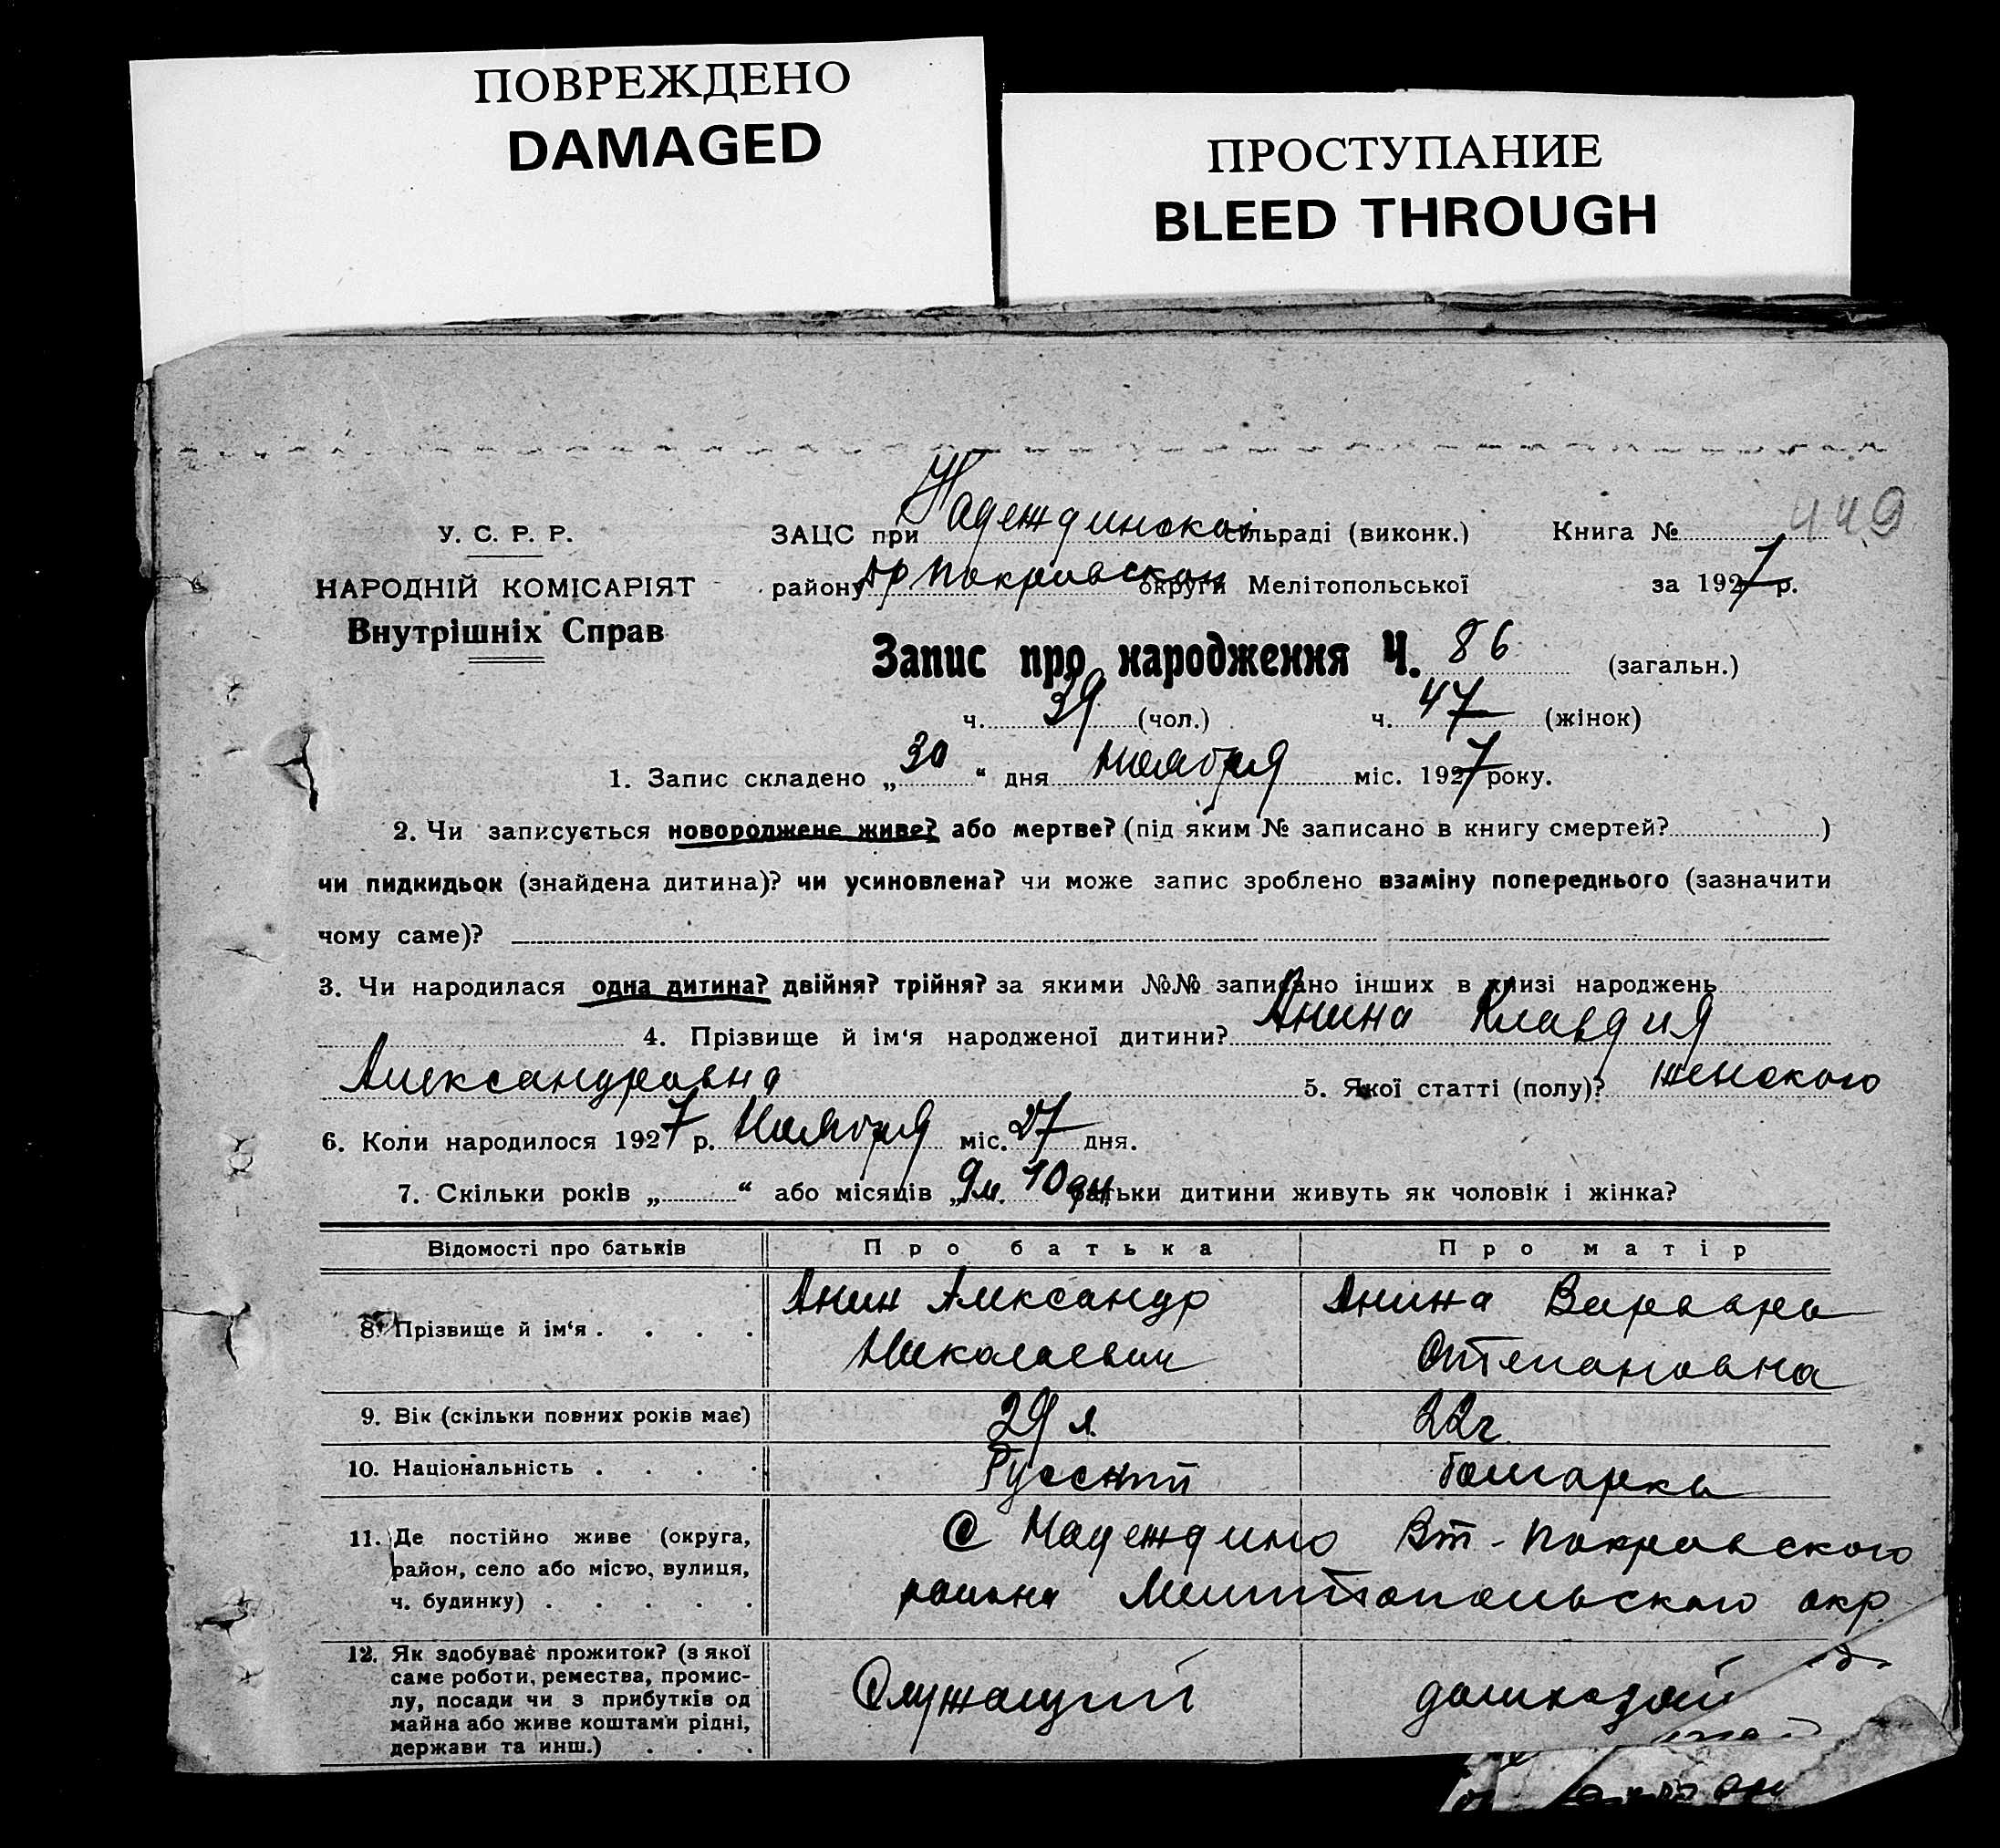 ПОВРЕЖДЕНО
DAMAGED
ПРОСТУПАНИЕ
BLEED THROUGH
449
У. С. Р. Р.
НАРОДНІЙ КОМІСАРІЯТ
Внутрішніх Справ
ЗАЦС при Надеждинской сільраді (виконк.) Книга №
району Вт Покровском округи Мелітопольської за 1927 р.
Запис про народження Ч. 86 (загальн.)
ч. 39 (чол.) ч. 47 (жінок)
1. Запис складено „30“ дня Ноября міс. 1927 року.
2. Чи записується новороджене живе? або мертве? (під яким № записано в книгу смертей? )
чи пидкидьок (знайдена дитина)? чи усиновлена? чи може запис зроблено взаміну попереднього (зазначити
чому саме)?
3. Чи народилася одна дитина? двійня? трійня? за якими №№ записано інших в книзі народжень
4. Прізвище й ім'я народженої дитини? Анина Клавдия
Александровна 5. Якої статті (полу)? женского
6. Коли народилося 1927 р. Ноября міс. 27 дня.
7. Скільки років „ “ або місяців „9 м. 10 дн батьки дитини живуть як чоловік і жінка?
Відомості про батьків Про батька Про матір
8. Прізвище й ім'я . . . . Анин Александр Николаевич Анина Варвара Степановна
9. Вік (скільки повних років має) 29 л. 22 г.
10. Національність . . . . Русский болгарка
11. Де постійно живе (округа, район, село або місто, вулиця, ч. будинку) . . . . . С Надеждино Вт-Покровского
района Мелитопольского окр
12. Як здобуває прожиток? (з якої саме роботи, ремества, промислу, посади чи з прибутків од майна або живе коштами рідні, держави та инш.) . . . Служащий домхозяй